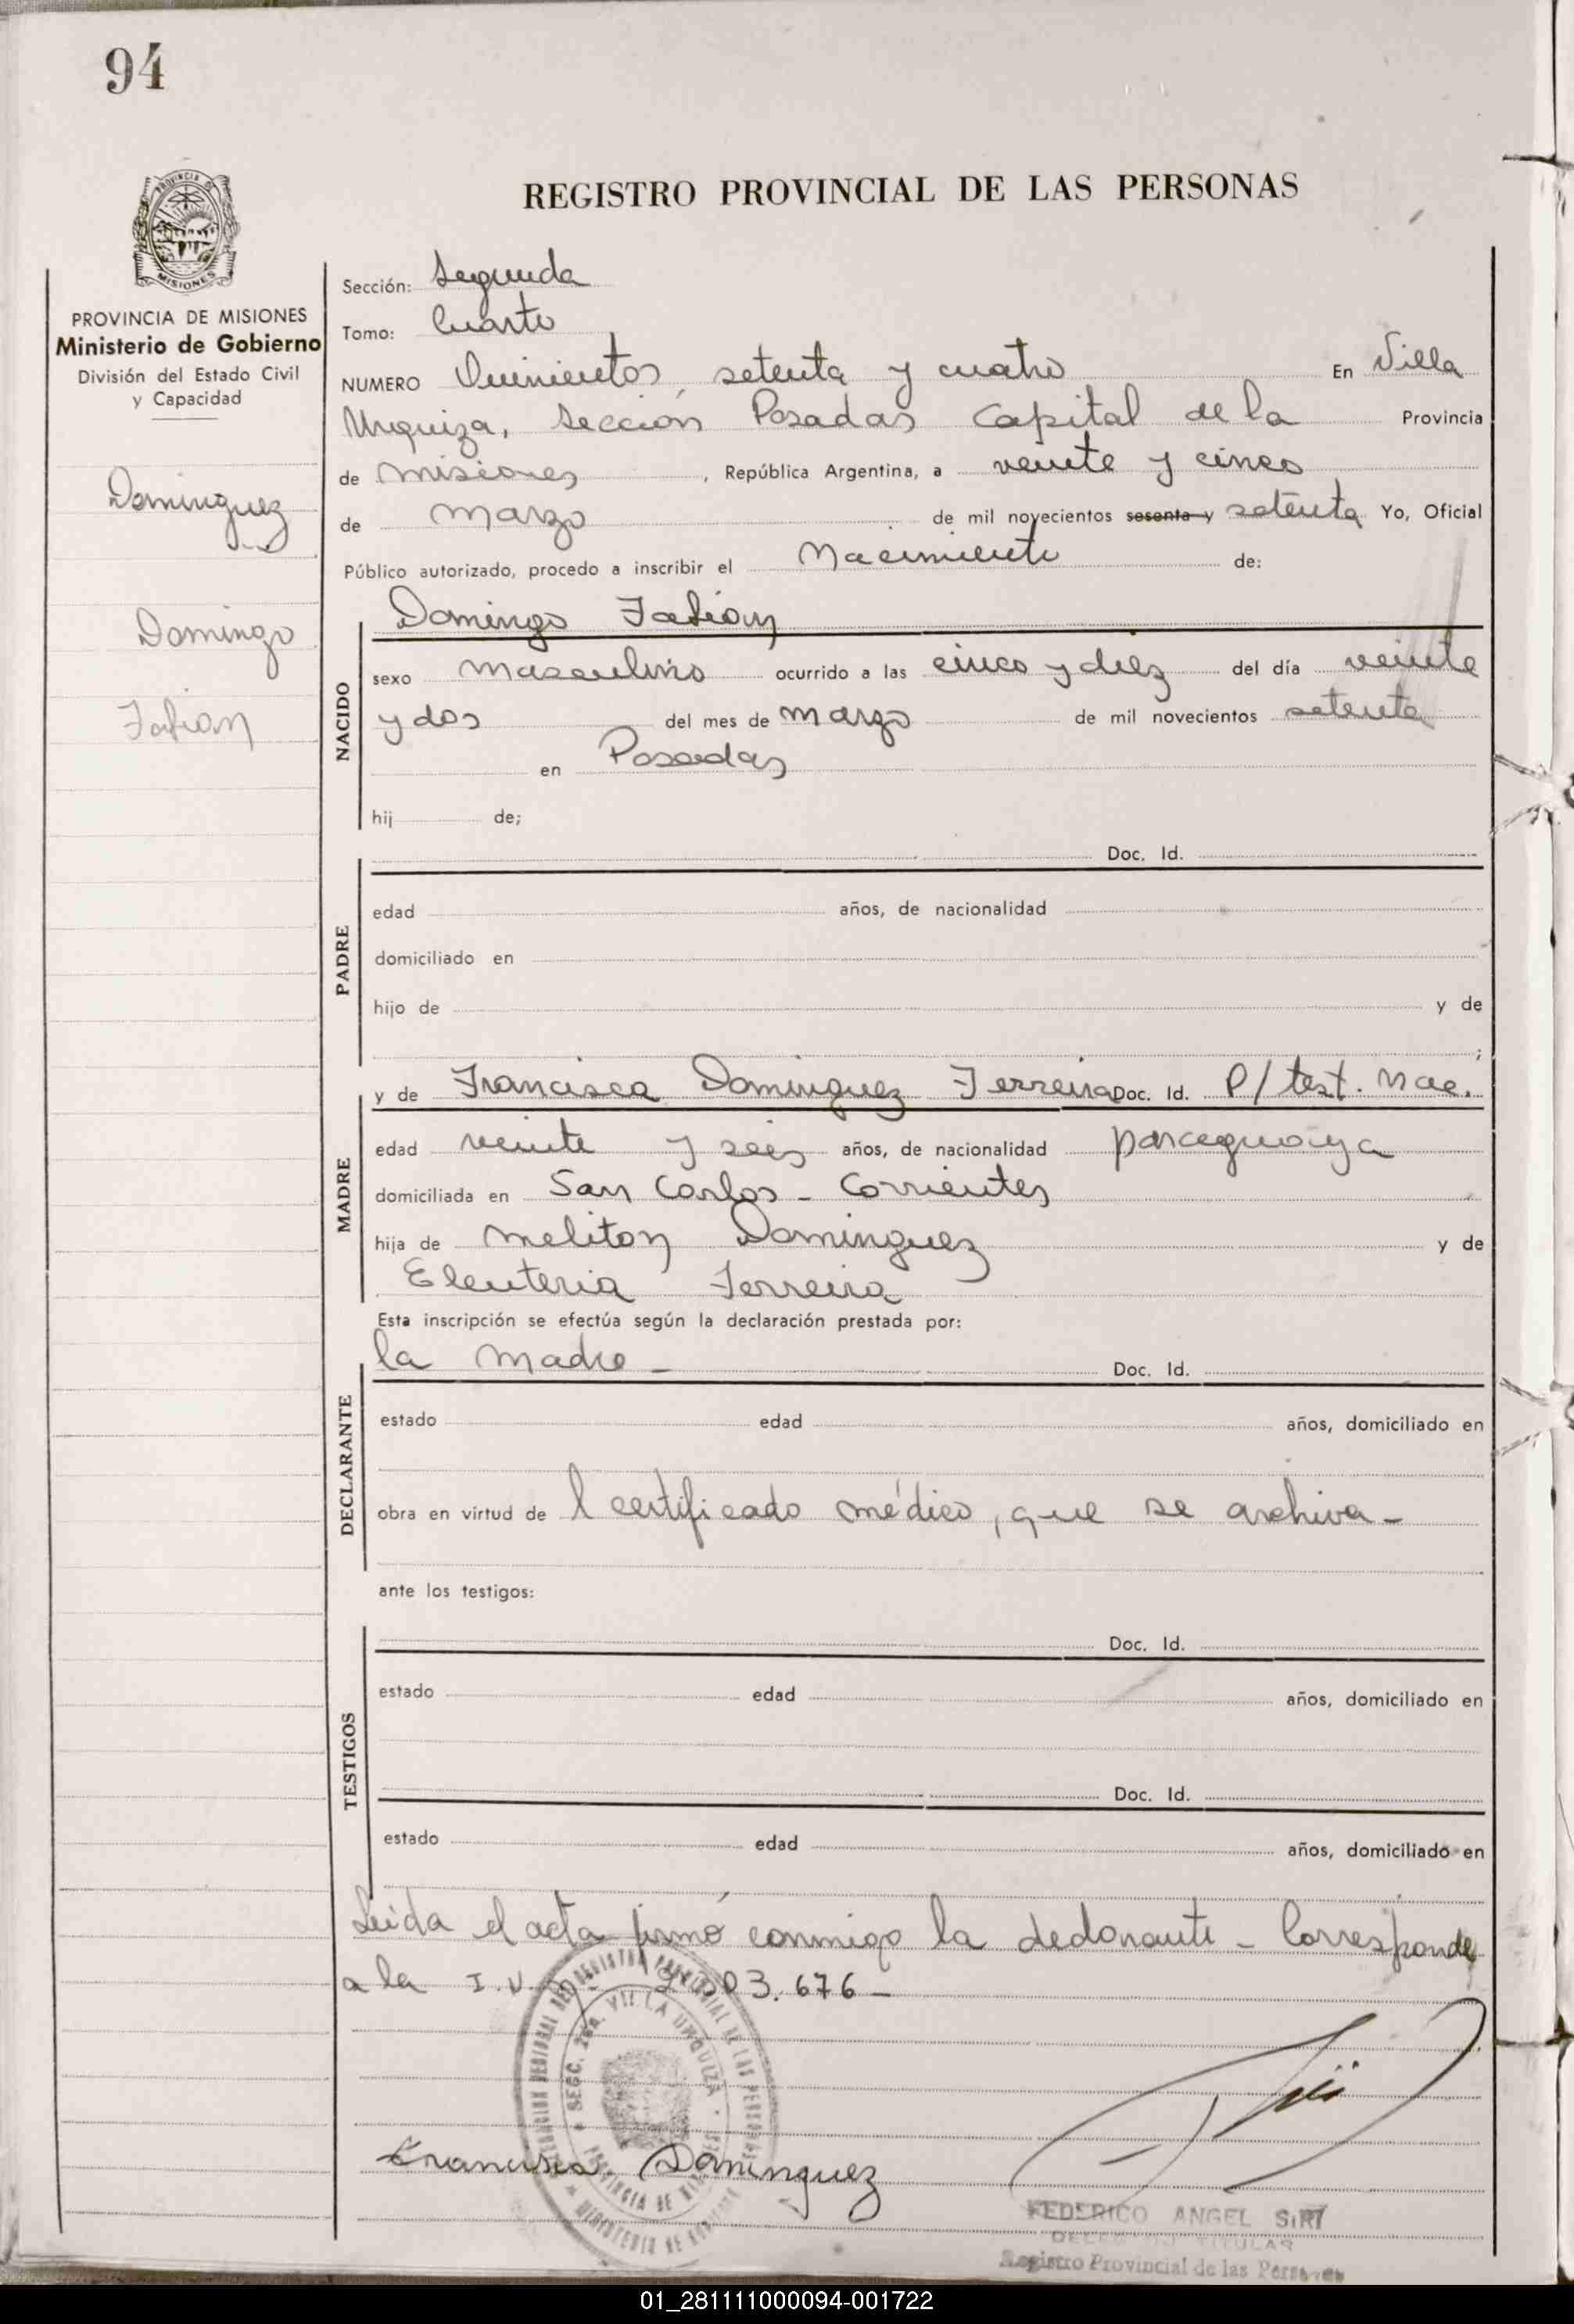 94
PROVINCIA DE
MISIONES
REGISTRO PROVINCIAL DE LAS PERSONAS
PROVINCIA DE MISIONES
Ministerio de Gobierno
División del Estado Civil
y Capacidad
Dominguez
Domingo
Fabian
Sección: Segunda
Tomo: Cuarto
NUMERO Quinientos setenta y cuatro En Villa
Urquiza, Sección Posadas Capital de la Provincia
de Misiones, República Argentina, a veinte y cinco
de Marzo de mil novecientos sesenta y setenta Yo, Oficial
Público autorizado, procedo a inscribir el Nacimiento de:
NACIDO
Domingo Fabian
sexo masculino ocurrido a las cinco y diez del día veinte
y dos del mes de marzo de mil novecientos setenta
en Posadas
hij de;
PADRE
Doc. Id.
edad años, de nacionalidad
domiciliado en
hijo de y de
;
MADRE
y de Francisca Dominguez Ferreira Doc. Id. P/ test. nac.
edad veinte y seis años, de nacionalidad paraguaya
domiciliada en San Carlos - Corrientes
hija de Meliton Dominguez y de
Eleuteria Ferreira
Esta inscripción se efectúa según la declaración prestada por:
DECLARANTE
la madre - Doc. Id.
estado edad años, domiciliado en
obra en virtud de l certificado médico, que se archiva -
ante los testigos:
TESTIGOS
Doc. Id.
estado edad años, domiciliado en
Doc. Id.
estado edad años, domiciliado en
Leida el acta firmó conmigo la declarante - Corresponde
a la I.U. 3.676 -
SECC. 2da. VILLA URQUIZA
PROVINCIA DE MISIONES
Francisca Dominguez
FEDERICO ANGEL SIRI
DELEGADO TITULAR
Registro Provincial de las Personas
01_281111000094-001722